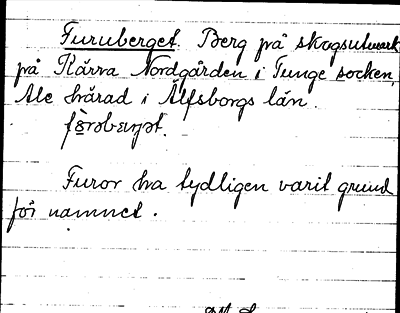 Furuberget. Berg på skogsutmark
på Kärra Nordgården i Tunge socken,
Ale härad i Älfsborgs län.
Furor ha tydligen varit grund
för namnet.